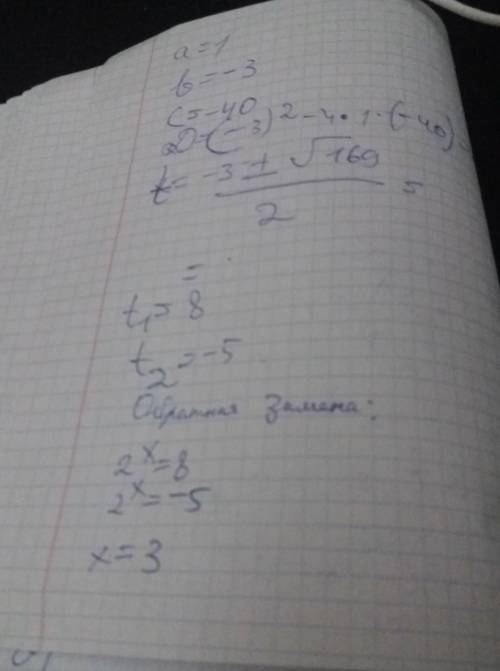 a=1
b=-3
c=-40
D=(-3)2-4·1·(-40)=
t= -3±√169 / 2 =
=
t1=8
t2=-5
Обратная замена:
2^x=8
2^x=-5
x=3